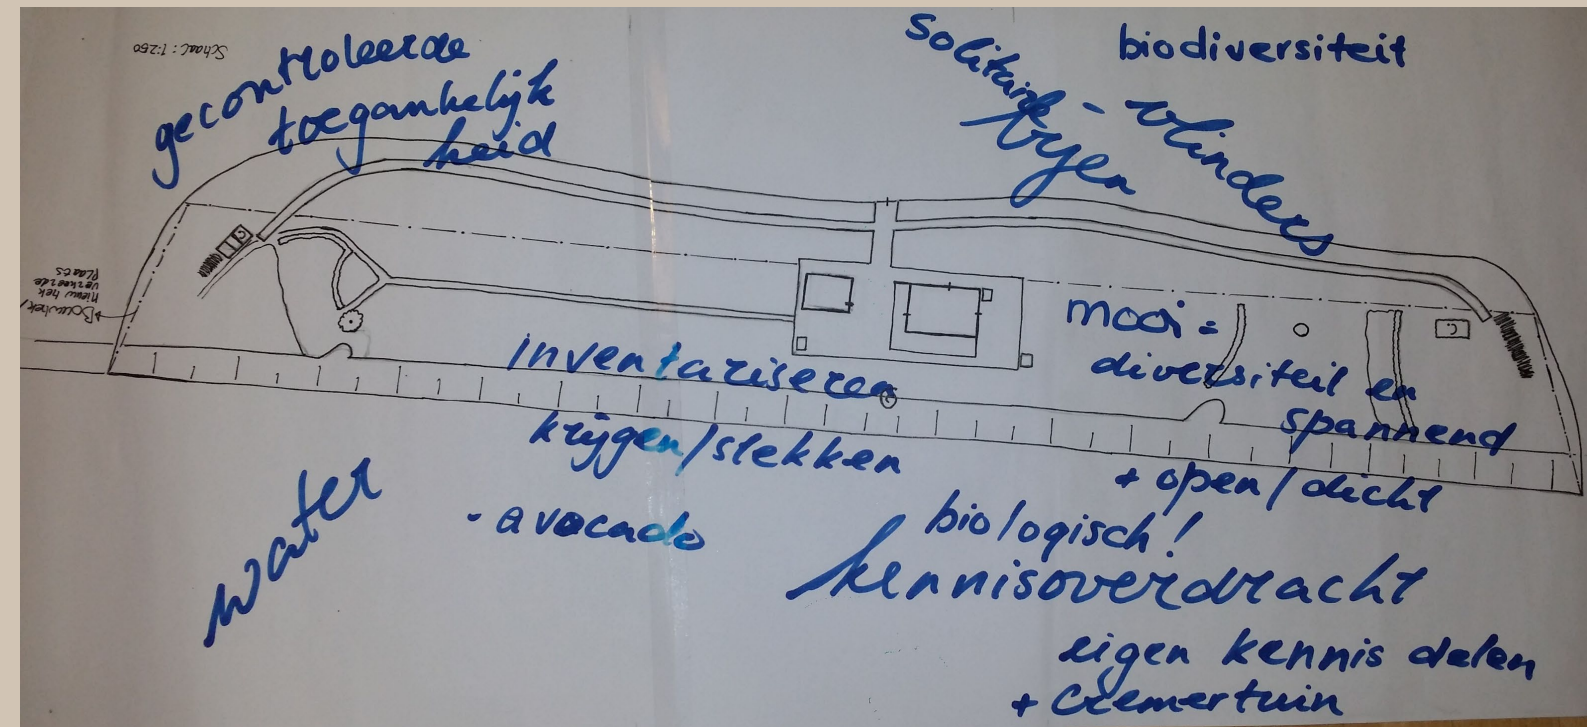 Schaal: 1:250
gecontroleerde
toegankelijk
heid
solitaire - vlinders
byen
biodiversiteit
Bouwhek/
nieuw hek
verkeerde
plaats
C
mooi =
diversiteit en
spannend
+ open/dicht
inventariseren
krijgen/stekken
- avocado
water
biologisch!
kennisoverdracht
eigen kennis delen
+ Cremertuin